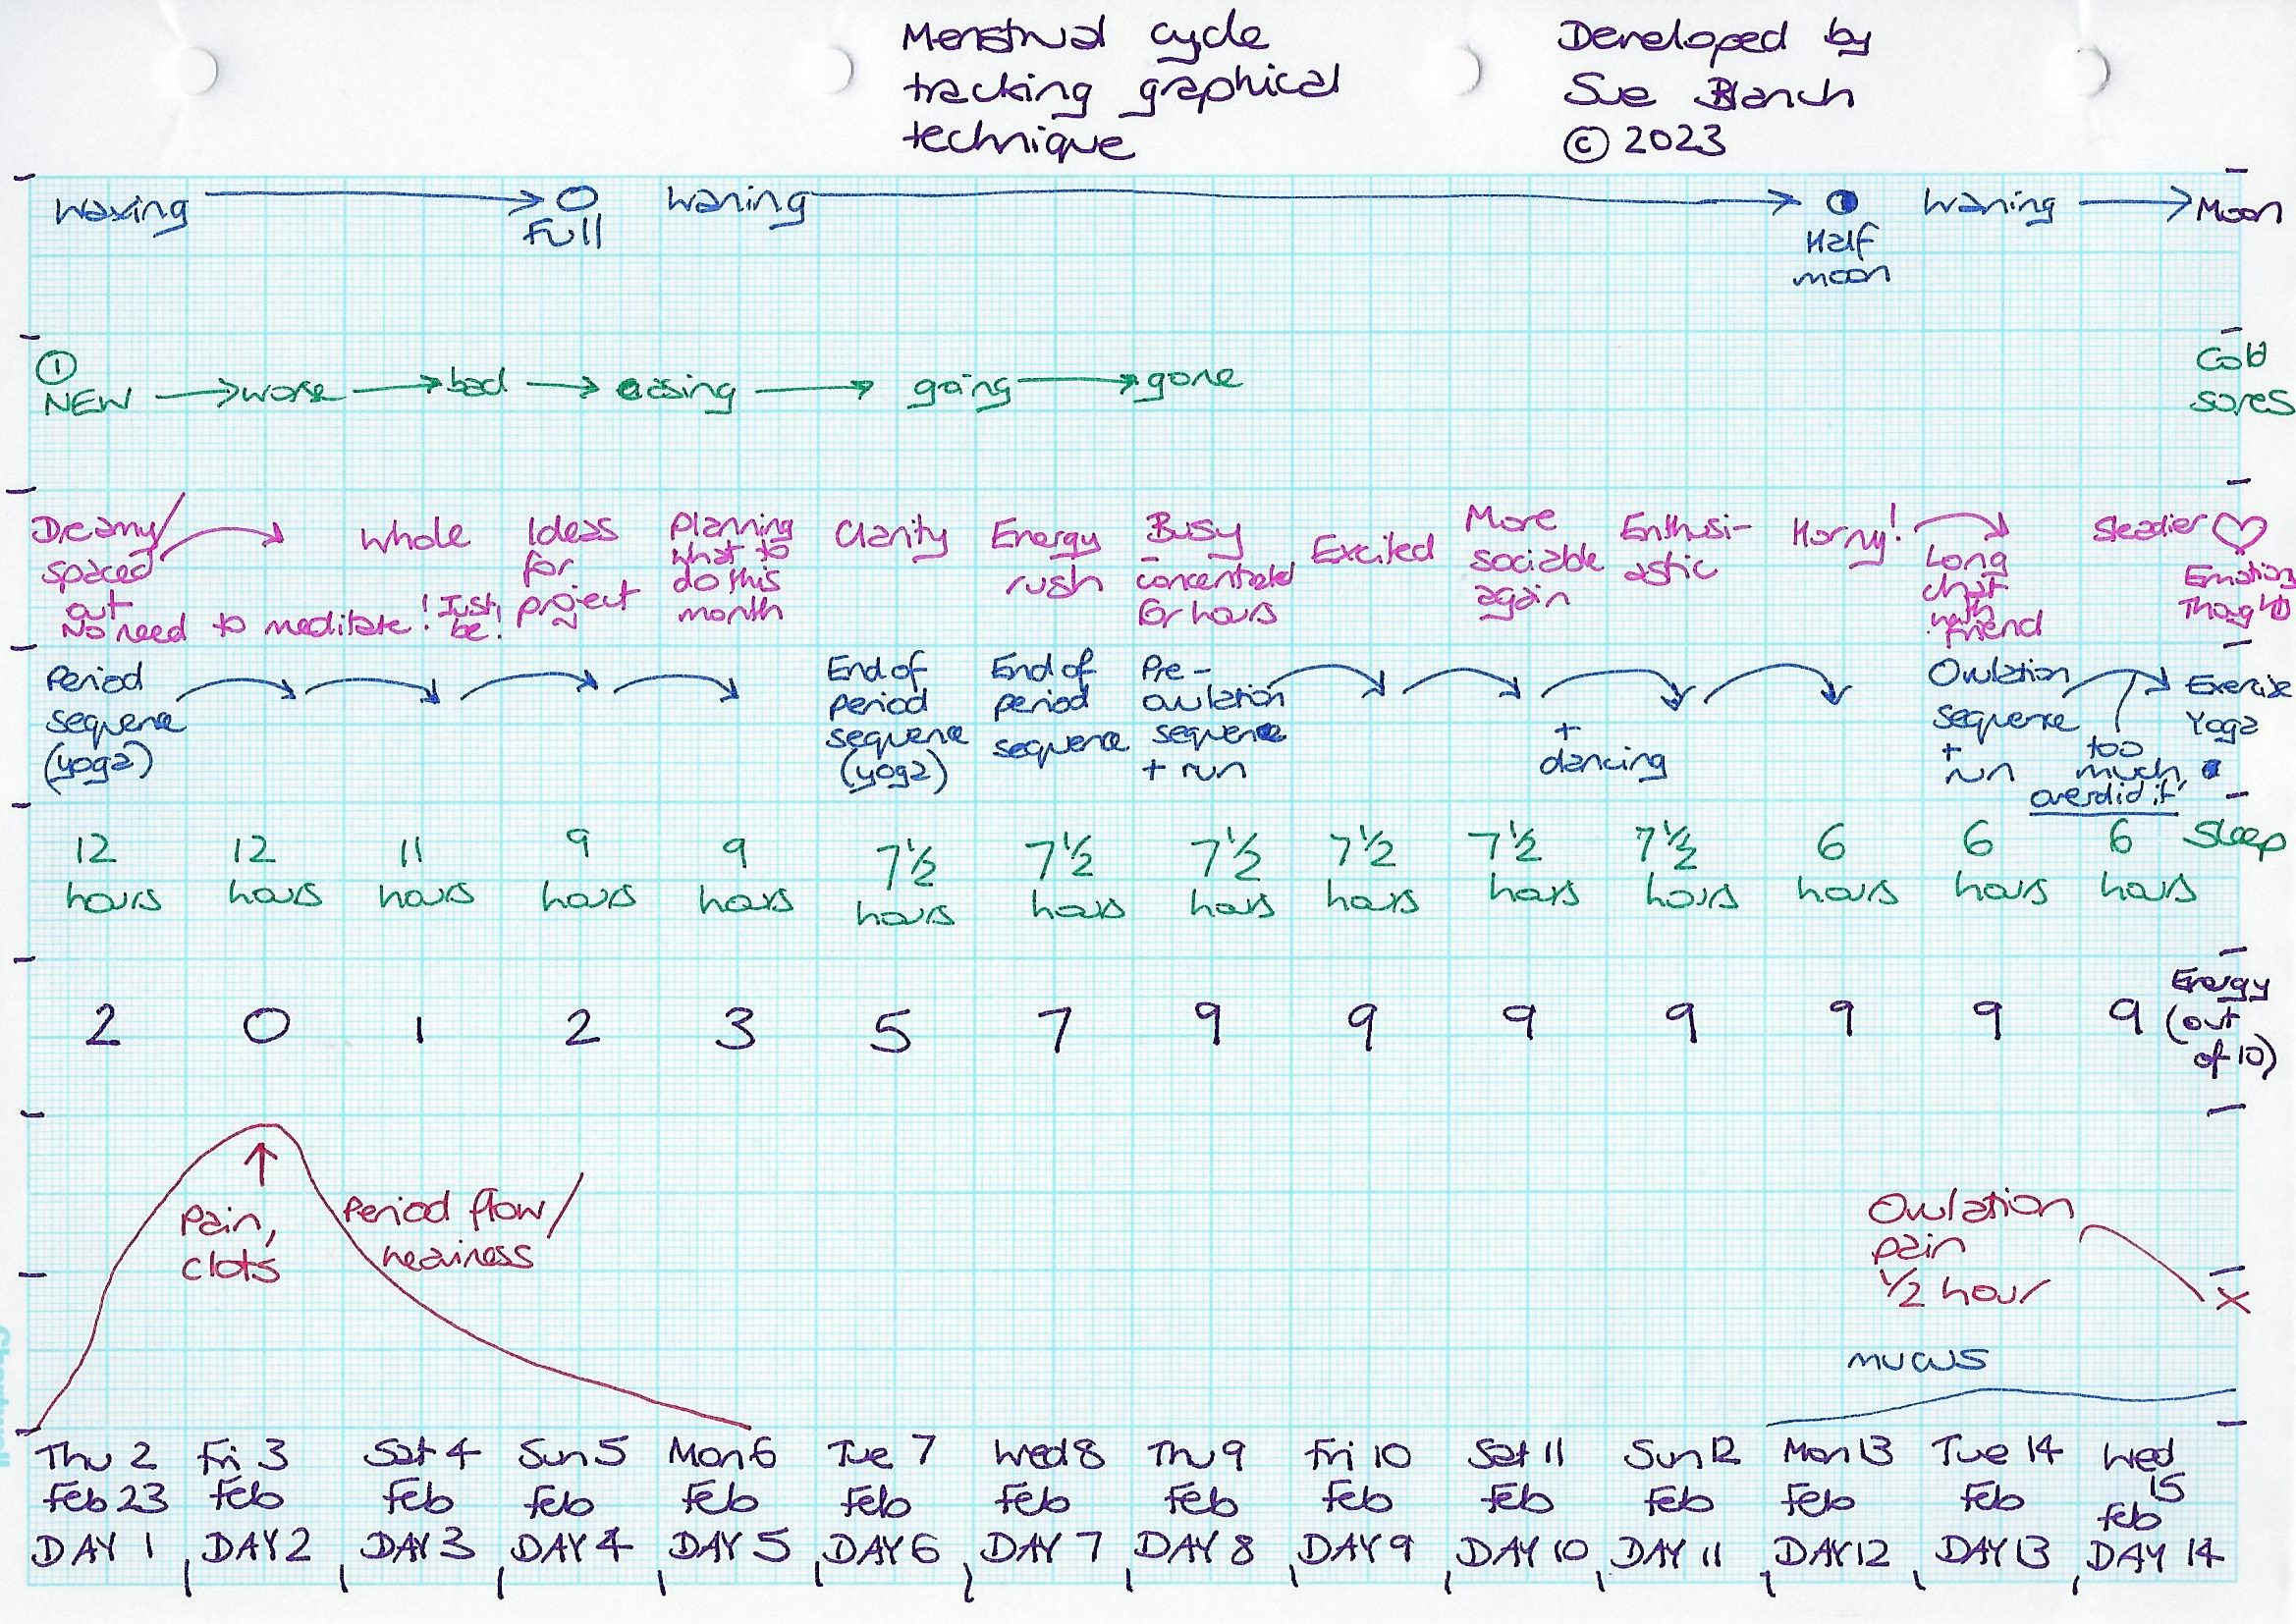 Menstrual cycle
tracking graphical
technique
Developed by
Sue Blanch
© 2023
Waxing
Full
Waning
Half
moon
Waning
Moon
1
NEW worse bad easing going gone
Cold
sores
Dreamy/
spaced
out
No need to meditate! Just
be!
Whole
Ideas
for
project
Planning
what to
do this
month
Clarity
Energy
rush
Busy
-
concentrated
for hours
Excited
More
sociable
again
Enthusi-
astic
Horny!
Long
chat
with
friend
Steadier
Emotions
Thoughts
Period
sequence
(yoga)
End of
period
sequence
(yoga)
End of
period
sequence
Pre-
ovulation
sequence
+ run
+
dancing
Ovulation
sequence
+
run
too
much,
overdid it!
Exercise
Yoga
12
hours
12
hours
11
hours
9
hours
9
hours
7½
hours
7½
hours
7½
hours
7½
hours
7½
hours
7½
hours
6
hours
6
hours
6
hours
Sleep
2 0 1 2 3 5 7 9 9 9 9 9 9 9
Energy
(out
of 10)
Pain,
clots
Period flow/
heaviness
Ovulation
pain
½ hour
x
mucus
Thu 2
Feb 23
DAY 1
Fri 3
Feb
DAY 2
Sat 4
Feb
DAY 3
Sun 5
Feb
DAY 4
Mon 6
Feb
DAY 5
Tue 7
Feb
DAY 6
Wed 8
Feb
DAY 7
Thu 9
Feb
DAY 8
Fri 10
Feb
DAY 9
Sat 11
Feb
DAY 10
Sun 12
Feb
DAY 11
Mon 13
Feb
DAY 12
Tue 14
Feb
DAY 13
Wed
15
Feb
DAY 14